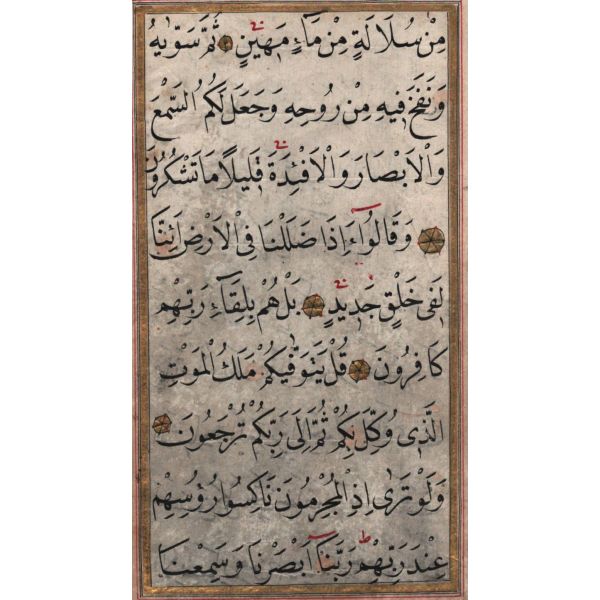 مِنْ سُلَالَةٍ مِنْ مَاءٍ مَهِينٍ ثُمَّ سَوّٰيهُ
وَنَفَخَ فِيهِ مِنْ رُوحِهِ وَجَعَلَ لَكُمُ السَّمْعَ
وَالْاَبْصَارَ وَالْاَفْئِدَةَ قَلِيلًا مَا تَشْكُرُونَ
وَقَالُوا ءَاِذَا ضَلَلْنَا فِى الْاَرْضِ اَئِنَّا
لَفِى خَلْقٍ جَدِيدٍ بَلْ هُمْ بِلِقَاءِ رَبِّهِمْ
كَافِرُونَ قُلْ يَتَوَفّٰيكُمْ مَلَكُ الْمَوْتِ
الَّذِى وُكِّلَ بِكُمْ ثُمَّ اِلٰى رَبِّكُمْ تُرْجَعُونَ
وَلَوْ تَرٰى اِذِ الْمُجْرِمُونَ نَاكِسُوا رُؤُسِهِمْ
عِنْدَ رَبِّهِمْ رَبَّنَا اَبْصَرْنَا وَسَمِعْنَا